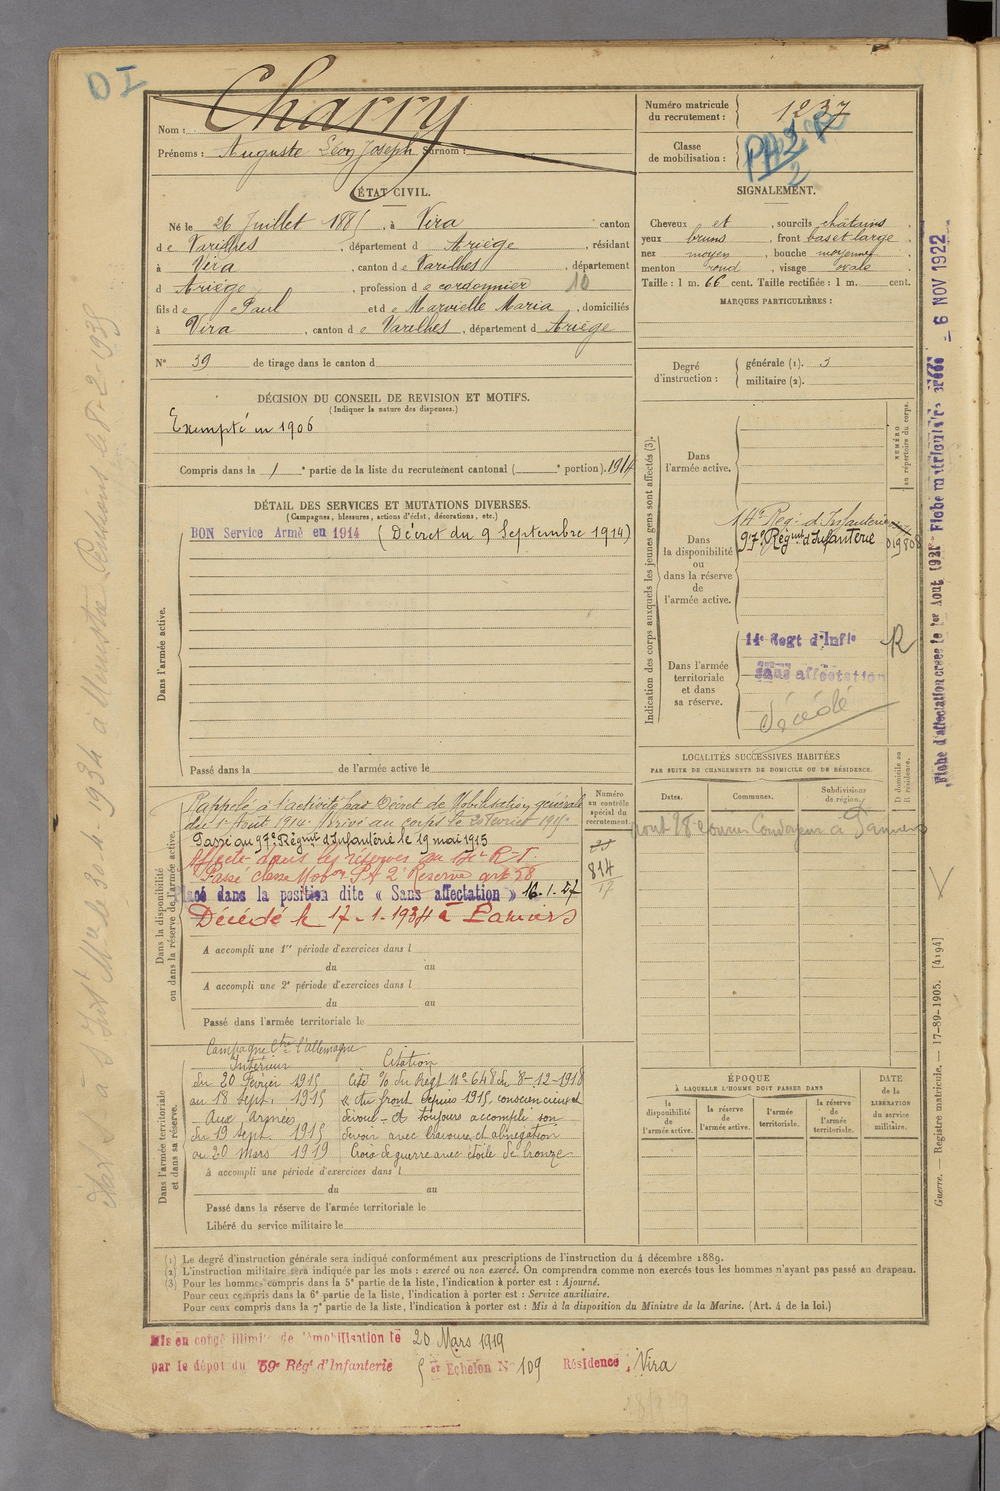 DI
Nom : Charry
Prénoms : Auguste Léon Joseph Surnom :
ÉTAT CIVIL.
Né le 26 Juillet 1885, à Vira canton
de Varilhes, département d Ariège, résidant
à Vira, canton de Varilhes, département
d Ariège, profession de cordonnier 10
fils de Paul et de Marvielle Maria, domiciliés
à Vira, canton de Varilhes, département d Ariège
N° 39 de tirage dans le canton d
DÉCISION DU CONSEIL DE REVISION ET MOTIFS.
(Indiquer la nature des dispenses.)
Exempté en 1906
Compris dans la 1re partie de la liste du recrutement cantonal ( e portion). 1914
DÉTAIL DES SERVICES ET MUTATIONS DIVERSES.
(Campagnes, blessures, actions d'éclat, décorations, etc.)
Dans l'armée active.
BON Service Armé en 1914 (Décret du 9 Septembre 1914)
Passé dans la de l'armée active le
Dans la disponibilité
ou dans la réserve de l'armée active.
Rappelé à l'activité par Décret de Mobilisation générale
du 1er Août 1914. Arrivé au corps le 20 février 1915
Passé au 97e Régmt d'Infanterie le 19 mai 1915
Affecté dans les réserves au 14e R.I.
Passé classe Mobon PA 2e Réserve art 58
Placé dans la position dite « Sans affectation » 16.1.27
Décédé le 17-1-1934 à Pamiers
A accompli une 1re période d'exercices dans l
du au
A accompli une 2e période d'exercices dans l
du au
Passé dans l'armée territoriale le
Numéro
au contrôle
spécial du
recrutement
814
17
Dans l'armée territoriale
et dans sa réserve.
Campagne Ctre l'allemagne
Intérieur
du 20 Février 1915
au 18 sept. 1915
Aux Armées
du 19 sept. 1915
au 20 Mars 1919
Citation
Cité % du Régt N° 648 du 8-12-1918
du front depuis 1915, consciencieux et
dévoué - et toujours accompli son
devoir avec bravoure et abnégation
Croix de guerre avec étoile de bronze
à accompli une période d'exercices dans l
du au
Passé dans la réserve de l'armée territoriale le
Libéré du service militaire le
Numéro matricule
du recrutement : 1237
Classe
de mobilisation : PA 2
SIGNALEMENT.
Cheveux et, sourcils châtains.
yeux bruns, front bas et large
nez moyen, bouche moyenne
menton rond, visage ovale.
Taille : 1 m. 66 cent. Taille rectifiée : 1 m. cent.
MARQUES PARTICULIÈRES :
Degré
d'instruction :
générale (1). 3
militaire (2).
Indication des corps auxquels les jeunes gens sont affectés (3).
NUMÉRO
au répertoire du corps.
Dans
l'armée active.
Dans
la disponibilité
ou
dans la réserve
de
l'armée active.
14e Rég. d'Infanterie
97e Régmt d'Infanterie 019808
Dans l'armée
territoriale
et dans
sa réserve.
14e Regt d'Infie R
sans affectation
décédé
LOCALITÉS SUCCESSIVES HABITÉES
PAR SUITE DE CHANGEMENTS DE DOMICILE OU DE RÉSIDENCE.
D domicile ou
R résidence.
Dates.
Communes.
Subdivisions
de région.
à Pamiers
ÉPOQUE
À LAQUELLE L'HOMME DOIT PASSER DANS
la
disponibilité
de
l'armée active.
la réserve
de
l'armée active.
l'armée
territoriale.
la réserve
de
l'armée
territoriale.
DATE
de la
LIBÉRATION
du service
militaire.
Fiche d'affectation créée le 1er Aout 1921 Fiche matriculaire créée - 6 NOV 1922
Guerre. — Registre matricule. — 17-89-1905. [4194]
(1) Le degré d'instruction générale sera indiqué conformément aux prescriptions de l'instruction du 4 décembre 1889.
(2) L'instruction militaire sera indiquée par les mots : exercé ou non exercé. On comprendra comme non exercés tous les hommes n'ayant pas passé au drapeau.
(3) Pour les hommes compris dans la 5e partie de la liste, l'indication à porter est : Ajourné.
Pour ceux compris dans la 6e partie de la liste, l'indication à porter est : Service auxiliaire.
Pour ceux compris dans la 7e partie de la liste, l'indication à porter est : Mis à la disposition du Ministre de la Marine. (Art. 4 de la loi.)
Mis en congé illimité de démobilisation le 20 Mars 1919
par le dépot du 59e Régt d'Infanterie 5 er Echelon N° 109 Résidence : Vira